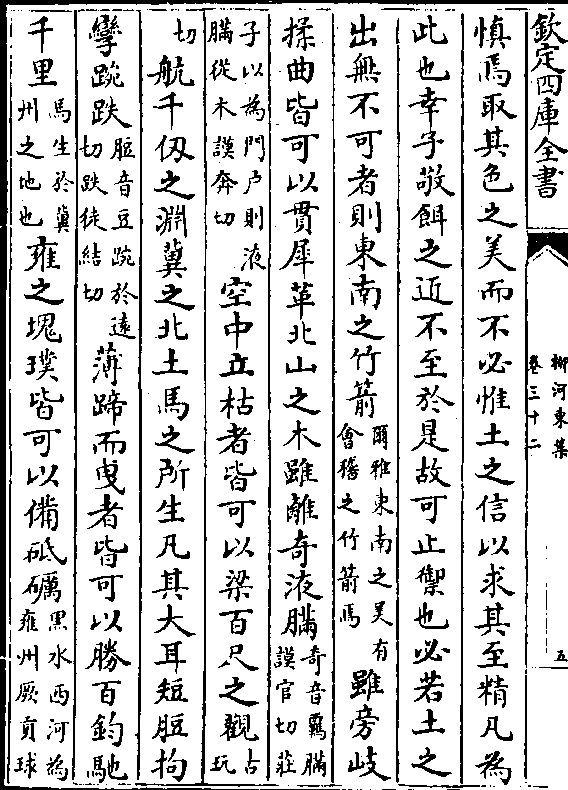 欽定四庫全書
柳河東集
卷三十二
五
慎焉取其色之美而不必惟土之信以求其至精凡為
此也幸子敬餌之近不至於是故可止禦也必若土之
出無不可者則東南之竹箭爾雅東南之美有會稽之竹箭焉雖旁岐
揉曲皆可以貫犀革北山之木雖離奇液瞞奇音覊瞞謨官切莊
子以為門戸則液瞞從木謨奔切空中立枯者皆可以梁百尺之觀古玩
切航千仭之淵冀之北土馬之所生凡其大耳短脰拘
攣踠跌脰音豆踠於遠切跌徒結切薄蹄而曵者皆可以勝百鈞馳
千里馬生於冀州之地也雍之塊璞皆可以備砥礪黒水西河為雍州厥貢球